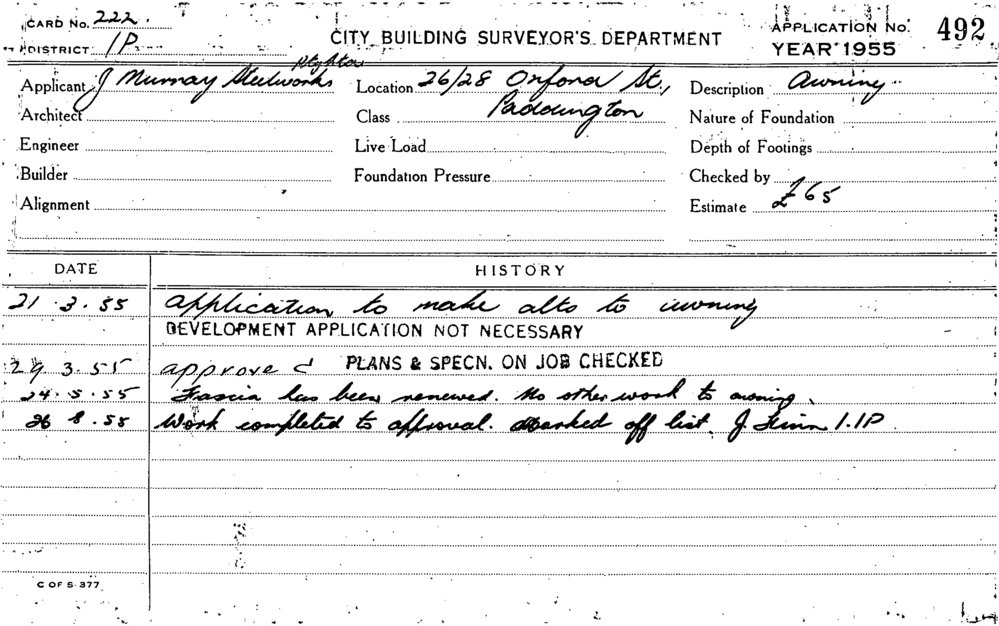 CARD No. 222.
DISTRICT 1P
CITY BUILDING SURVEYOR'S DEPARTMENT
APPLICATION No. 492
YEAR 1955
Applicant J Murray Steelworks
Location 26/28 Oxford St.,
Paddington
Description Awning
Architect
Class
Nature of Foundation
Engineer
Live Load
Depth of Footings
Builder
Foundation Pressure
Checked by
Alignment
Estimate £65
DATE HISTORY
21.3.55 Application to make alts to awning
DEVELOPMENT APPLICATION NOT NECESSARY
29.3.55 approved PLANS & SPECN. ON JOB CHECKED
24.5.55 Fascia has been renewed. No other work to awning.
26 8.55 Work completed to approval. Marked off list. J. 1.1P
C OF S 377